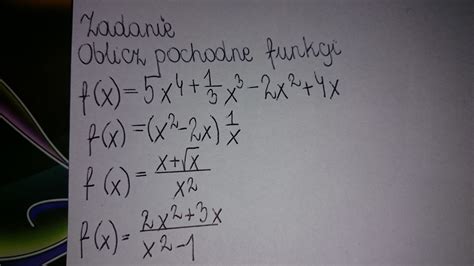 Zadanie
Oblicz pochodne funkcji
f(x) = 5x⁴ + 1/3 x³ - 2x² + 4x
f(x) = (x² - 2x) 1/x
f(x) = (x + √x) / x²
f(x) = (2x² + 3x) / (x² - 1)